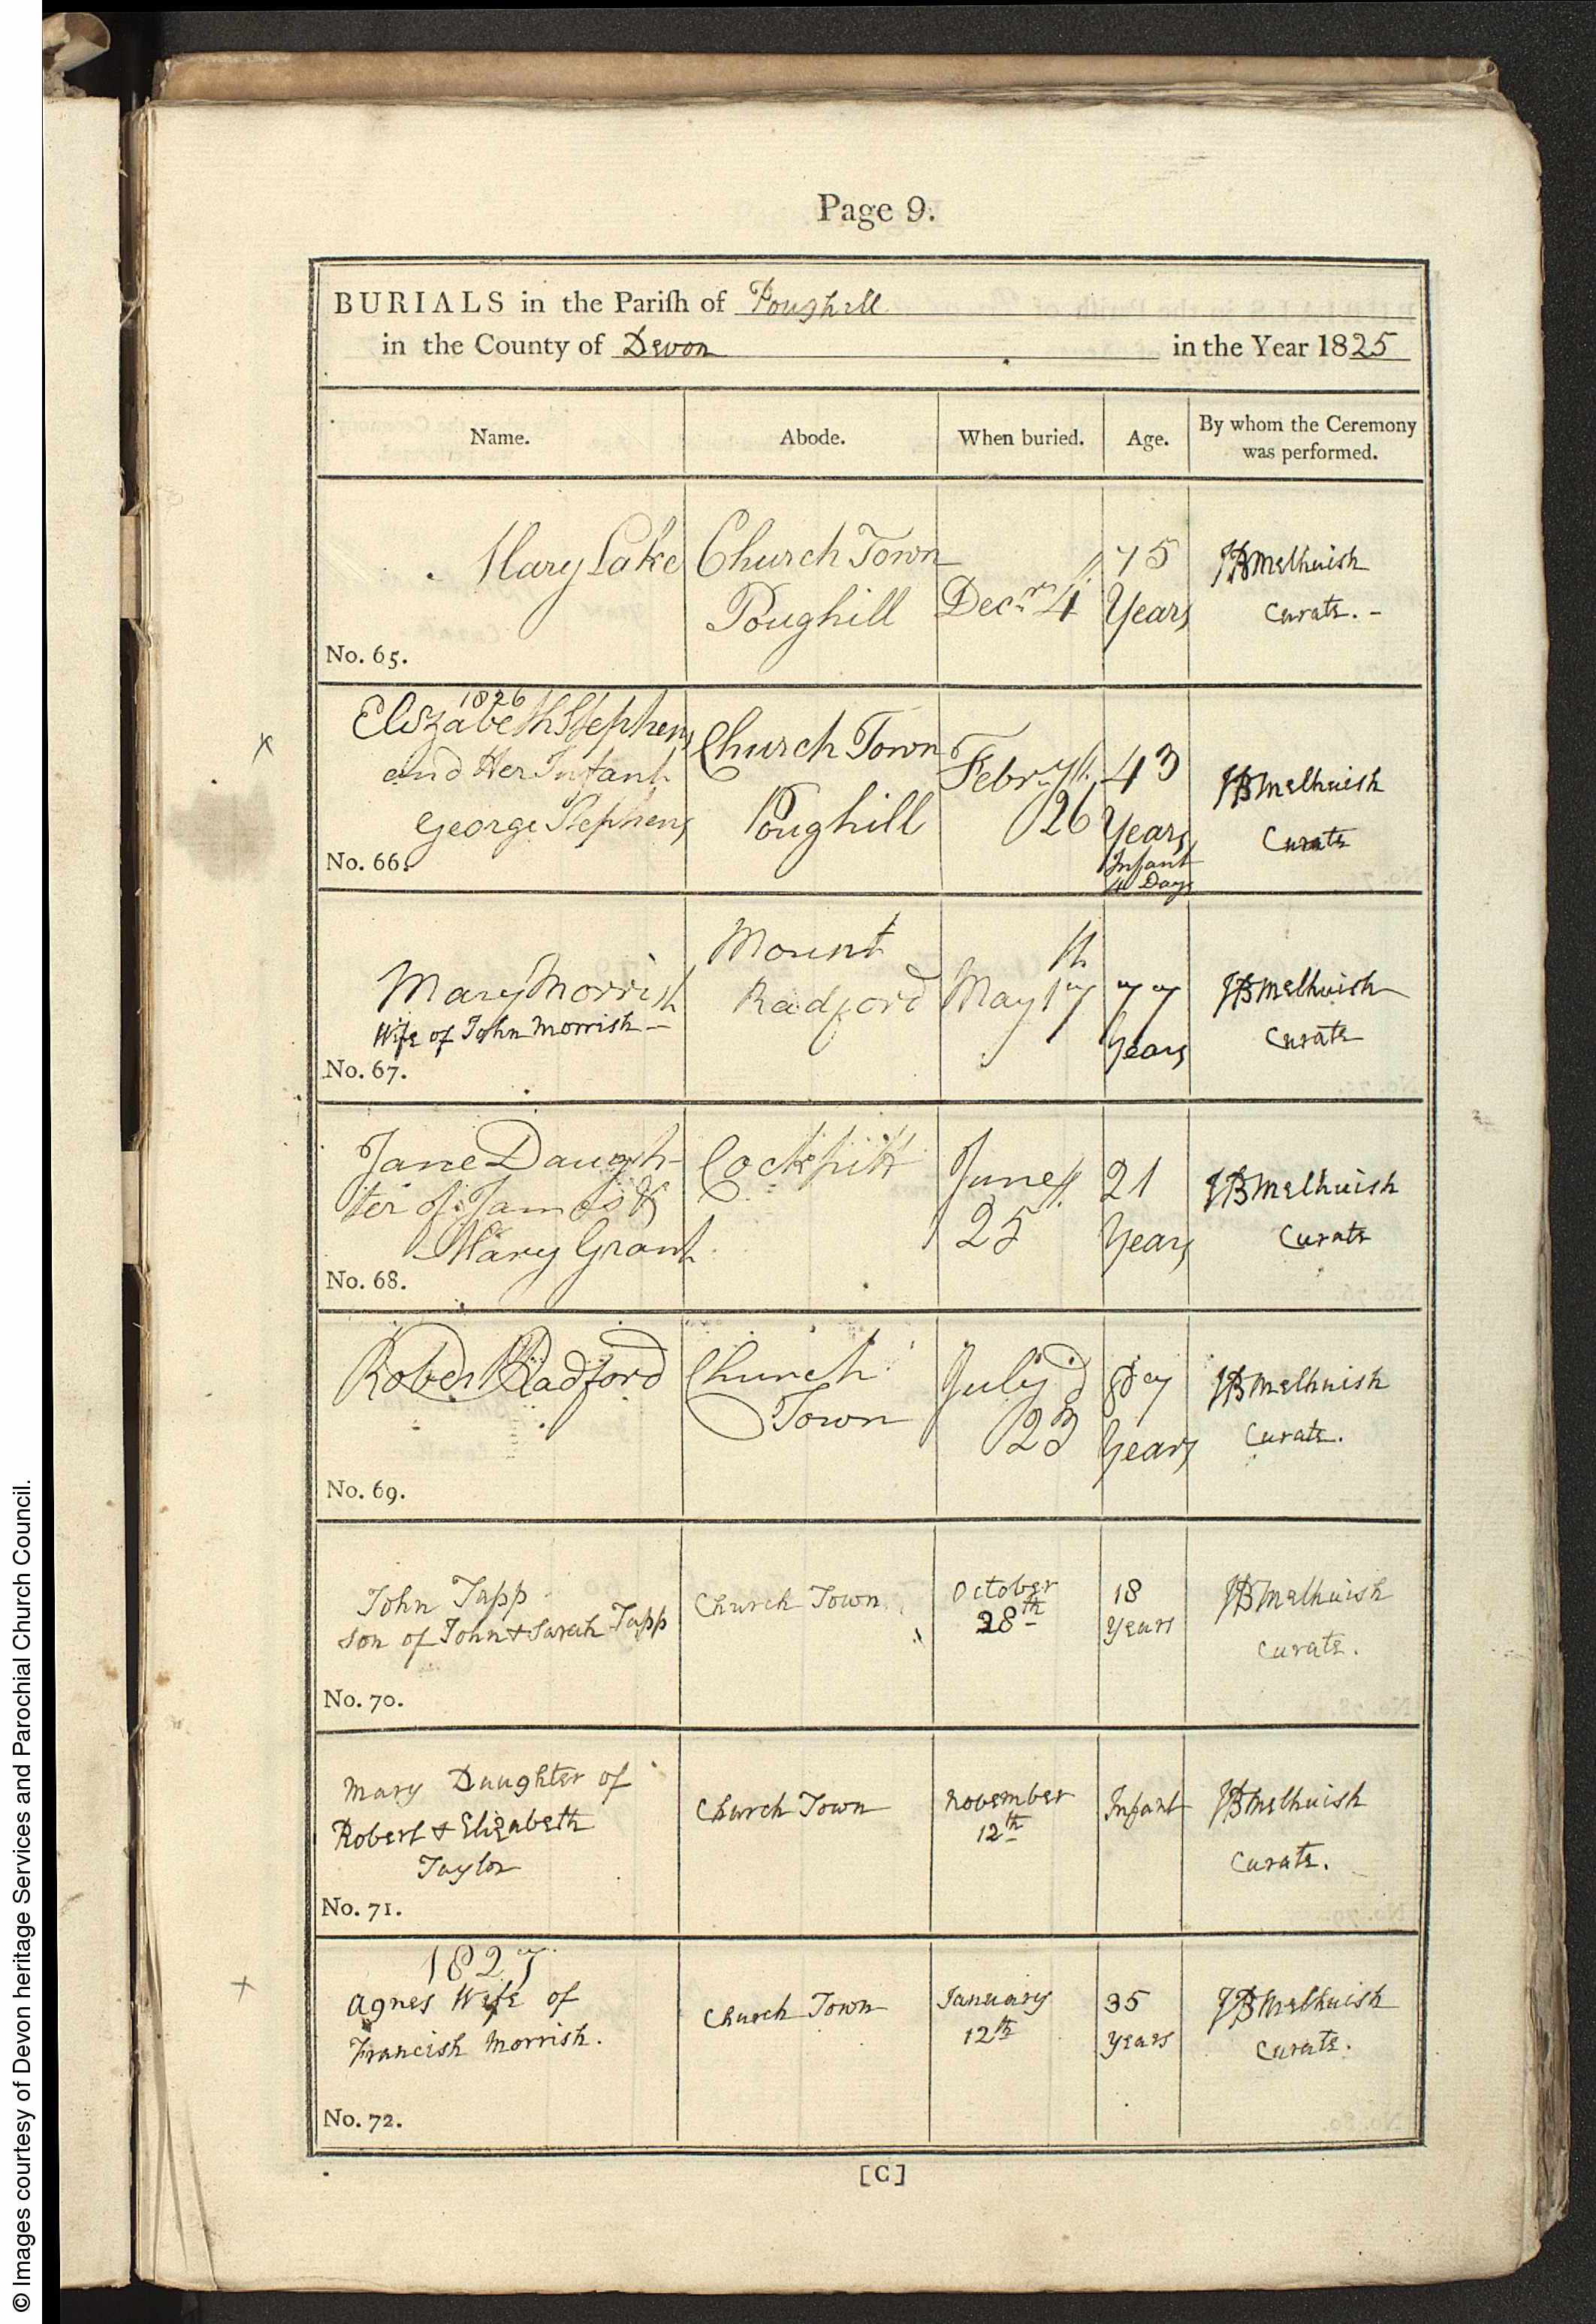 Page 9.
BURIALS in the Pariſh of Poughill
in the County of Devon in the Year 1825
Name. Abode. When buried. Age. By whom the Ceremony was performed.
Mary Lake
No. 65.
Church Town
Poughill
Decr. 4th
75
Years
JB Melhuish
Curate. -
1826
Elizabeth Stephens
and Her Infant
George Stephens
No. 66.
Church Town
Poughill
Febry th
26
43
Years
Infant
4 Days
JB Melhuish
Curate
Mary Morrish
Wife of John Morrish -
No. 67.
Mount
Radford
th
May 17
77
Years
JB Melhuish
Curate
Jane Daugh-
ter of James &
Mary Grant
No. 68.
Cockpitt
June th
25
21
Years
JB Melhuish
Curate
Robert Radford
No. 69.
Church
Town
July d
23
87
Years
JB Melhuish
Curate.
John Tapp
Son of John & Sarah Tapp
No. 70.
Church Town
October
28th
18
Years
JB Melhuish
Curate.
Mary Daughter of
Robert & Elizabeth
Taylor
No. 71.
Church Town
November
12th
Infant
JB Melhuish
Curate.
1827
Agnes Wife of
Francish Morrish.
No. 72.
Church Town
January
12th
35
Years
JB Melhuish
Curate.
[C]
© Images courtesy of Devon heritage Services and Parochial Church Council.